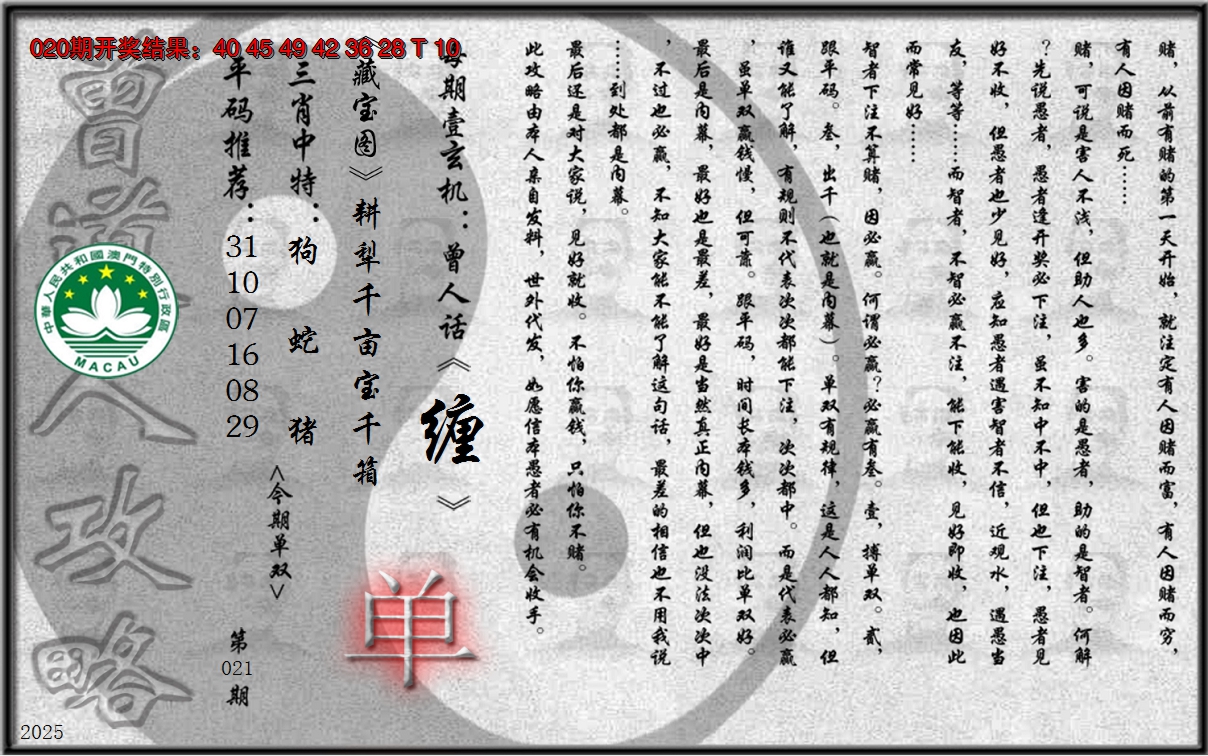 020期开奖结果：40 45 49 42 36 28 T 10
赌，从前有赌的第一天开始，就注定有人因赌而富，有人因赌而穷，
有人因赌而死……
赌，可说是害人不浅，但助人也多。害的是愚者，助的是智者。何解
？先说愚者，愚者逢开奖必下注，虽不知中不中，但也下注，愚者见
好不收，但愚者也少见好，应知愚者遇害智者不信，近观水，遇愚当
友，等等……而智者，不智必赢不注，能下能收，见好即收，也因此
而常见好……
智者下注不算赌，因必赢。何谓必赢？必赢有叁。壹，搏单双。贰，
跟平码。叁，出千（也就是内幕）。单双有规律，这是人人都知，但
谁又能了解，有规则不代表次次都能下注，次次都中。而是代表必赢
，虽单双赢钱慢，但可靠。跟平码，时间长本钱多，利润比单双好。
最后是内幕，最好也是最差，最好是当然真正内幕，但也没法次次中
，不过也必赢，不知大家能不能了解这句话，最差的相信也不用我说
……到处都是内幕。
最后还是对大家说，见好就收。不怕你赢钱，只怕你不赌。
此攻略由本人亲自发料，世外代发，如愿信本愚者必有机会收手。
每期壹玄机：曾人话《缠》
《藏宝图》耕犁千亩宝千箱
三肖中特：狗 蛇 猪
平码推荐：31 10 07 16 08 29
<今期单双>
单
第021期
曾道人攻略
中華人民共和國澳門特別行政區
MACAU
2025